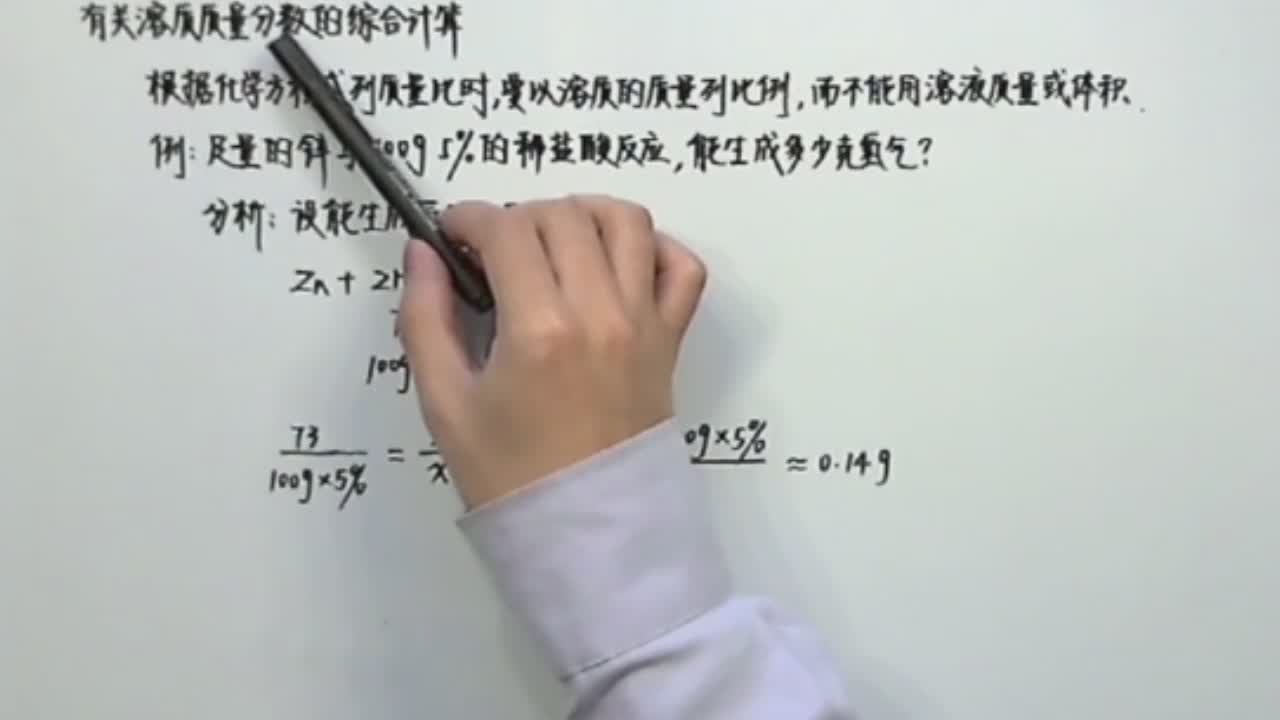 有关溶质质量分数的综合计算
根据化学方 列质量比时,要以溶质的质量列比例,而不能用溶液质量或体积.
例:足量的锌 00g 5%的稀盐酸反应,能生成多少克氢气?
分析:设能生
Zn + 2
100g
73/100g×5% = /x 0g×5% ≈ 0.14g